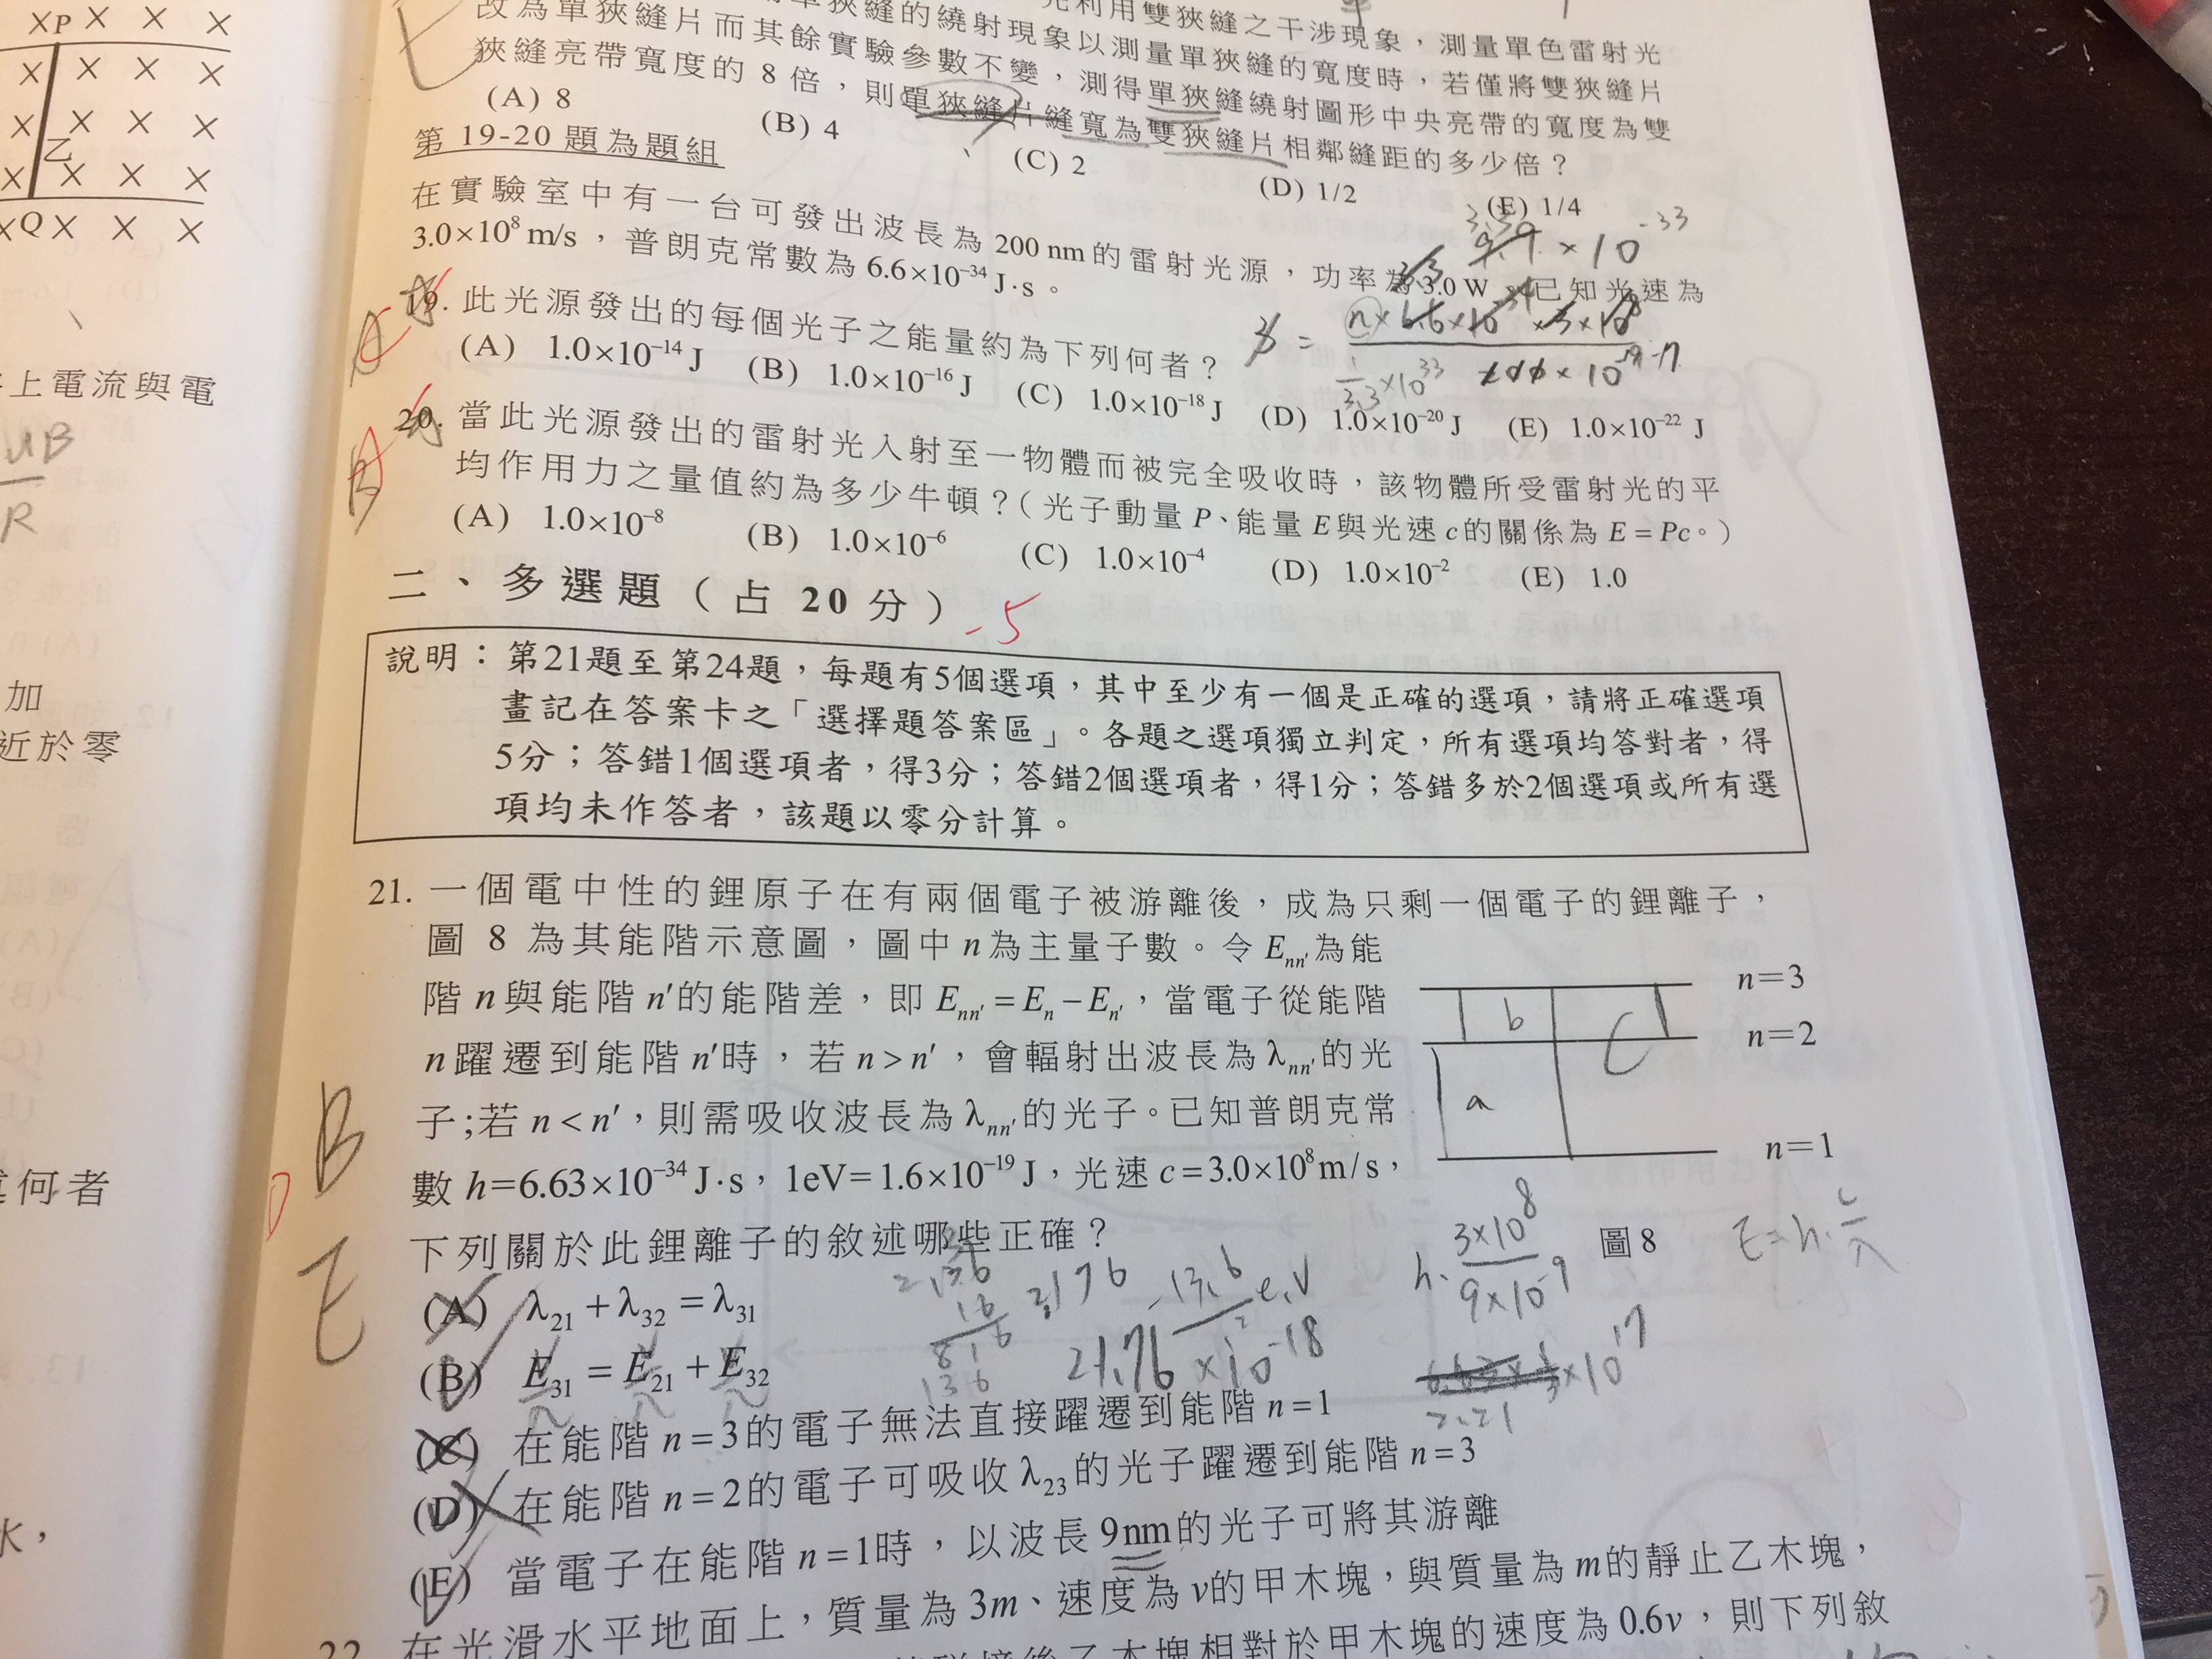 ×P × × ×
× × × ×
× × × ×
乙
× × × ×
×Q × × ×
上電流與電
μB
R
加
近於零
何者
水，
E
利用雙狹縫之干涉現象，測量單色雷射光
單狹縫的繞射現象以測量單狹縫的寬度時，若僅將雙狹縫片
改為單狹縫片而其餘實驗參數不變，測得單狹縫繞射圖形中央亮帶的寬度為雙
狹縫亮帶寬度的 8 倍，則單狹縫片縫寬為雙狹縫片相鄰縫距的多少倍？
(A) 8 (B) 4 (C) 2 (D) 1/2 (E) 1/4
第 19-20 題為題組
在實驗室中有一台可發出波長為 200 nm 的雷射光源，功率為 3.0 W，已知光速為
3.0×10⁸ m/s，普朗克常數為 6.6×10⁻³⁴ J·s。
19. 此光源發出的每個光子之能量約為下列何者？
(A) 1.0×10⁻¹⁴ J (B) 1.0×10⁻¹⁶ J (C) 1.0×10⁻¹⁸ J (D) 1.0×10⁻²⁰ J (E) 1.0×10⁻²² J
20. 當此光源發出的雷射光入射至一物體而被完全吸收時，該物體所受雷射光的平
均作用力之量值約為多少牛頓？（光子動量 P、能量 E 與光速 c 的關係為 E = Pc。）
(A) 1.0×10⁻⁸ (B) 1.0×10⁻⁶ (C) 1.0×10⁻⁴ (D) 1.0×10⁻² (E) 1.0
二、多選題（占 20 分）
-5
說明：第21題至第24題，每題有5個選項，其中至少有一個是正確的選項，請將正確選項
畫記在答案卡之「選擇題答案區」。各題之選項獨立判定，所有選項均答對者，得
5分；答錯1個選項者，得3分；答錯2個選項者，得1分；答錯多於2個選項或所有選
項均未作答者，該題以零分計算。
21. 一個電中性的鋰原子在有兩個電子被游離後，成為只剩一個電子的鋰離子，
圖 8 為其能階示意圖，圖中 n 為主量子數。令 Eₙₙ′ 為能
階 n 與能階 n′ 的能階差，即 Eₙₙ′ = Eₙ − Eₙ′，當電子從能階
n 躍遷到能階 n′ 時，若 n > n′，會輻射出波長為 λₙₙ′ 的光
子；若 n < n′，則需吸收波長為 λₙₙ′ 的光子。已知普朗克常
數 h=6.63×10⁻³⁴ J·s，1eV=1.6×10⁻¹⁹ J，光速 c=3.0×10⁸ m/s，
下列關於此鋰離子的敘述哪些正確？
n=3
n=2
n=1
b
C
a
圖 8
E=h·c/λ
h· 3×10⁸
9×10⁻⁹
B
E
(A) λ₂₁ + λ₃₂ = λ₃₁
(B) E₃₁ = E₂₁ + E₃₂
21.76 ×10⁻¹⁸
2.21
(C) 在能階 n = 3 的電子無法直接躍遷到能階 n = 1
(D) 在能階 n = 2 的電子可吸收 λ₂₃ 的光子躍遷到能階 n = 3
(E) 當電子在能階 n = 1 時，以波長 9nm 的光子可將其游離
22. 在光滑水平地面上，質量為 3m、速度為 v 的甲木塊，與質量為 m 的靜止乙木塊，
碰撞後乙木塊相對於甲木塊的速度為 0.6v，則下列敘